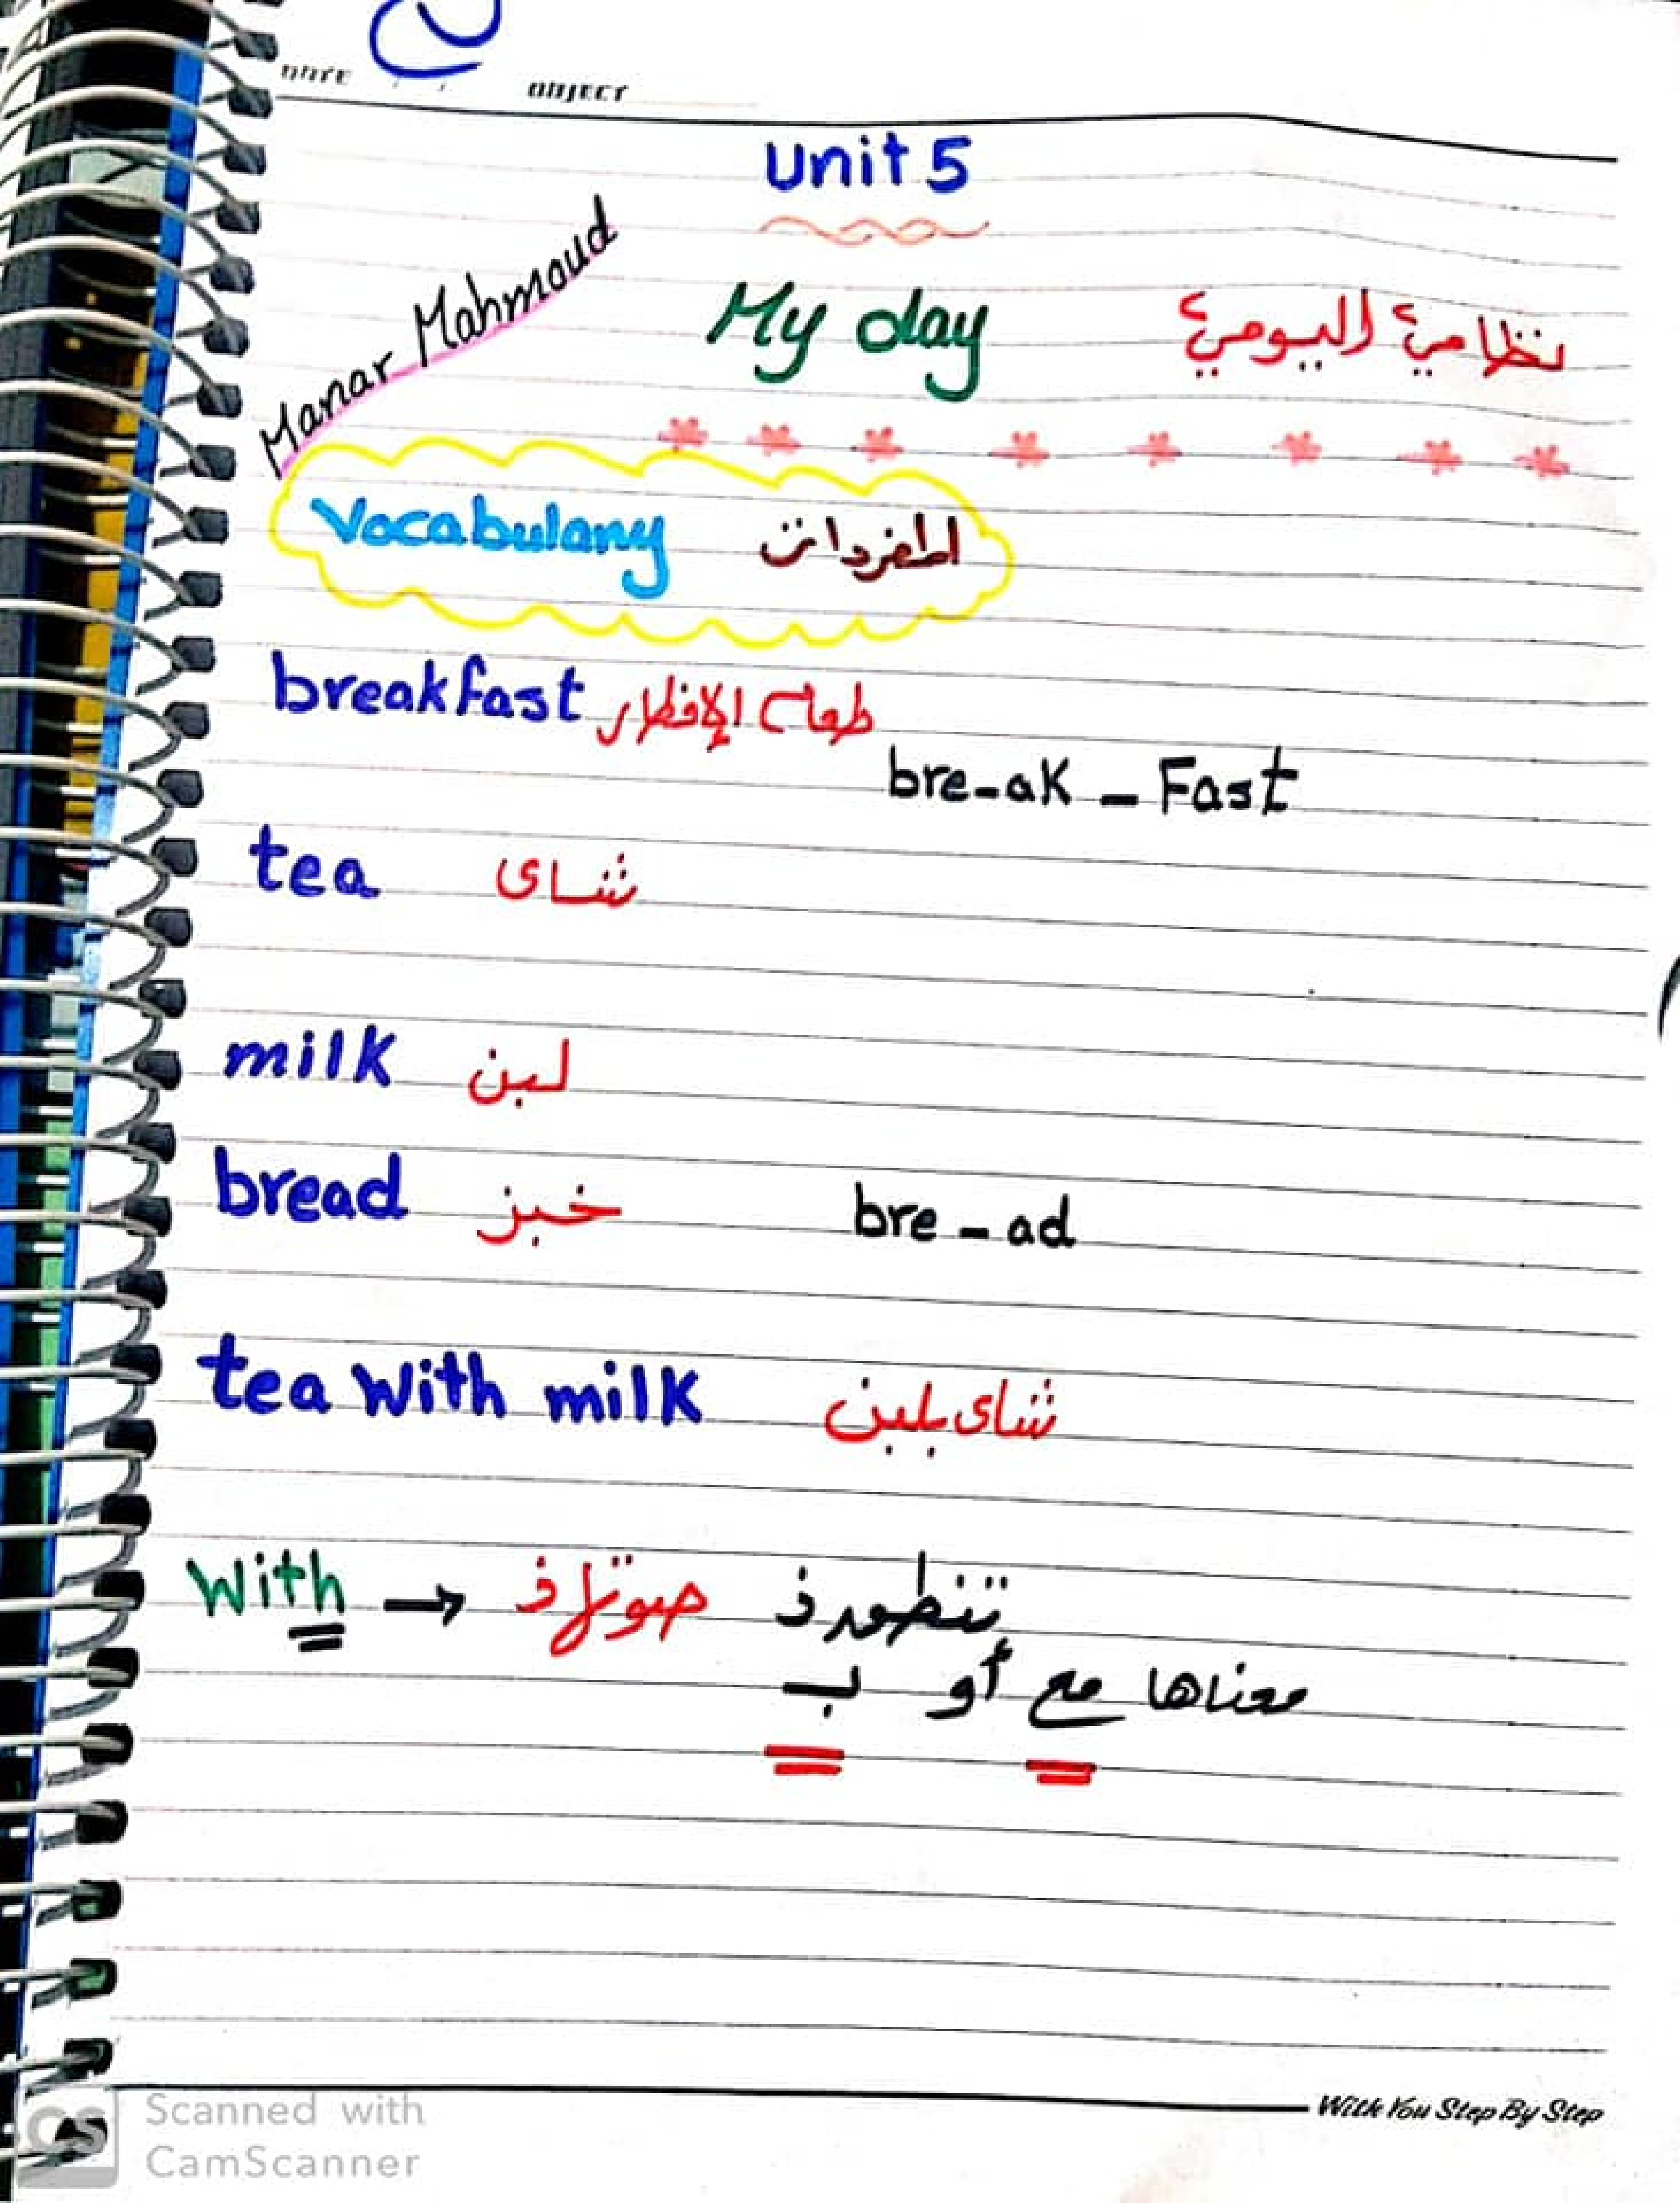 DATE / / OBJECT
Unit 5
Manar Mahmoud
My day نظامي اليومي
Vocabulary المفردات
breakfast طعام الإفطار
bre-ak - Fast
tea شاى
milk لبن
bread خبز bre - ad
tea with milk شاى بلبن
With → صوتها ذ تنطق ذ
معناها مع أو بـ
With You Step By Step
CS Scanned with
CamScanner